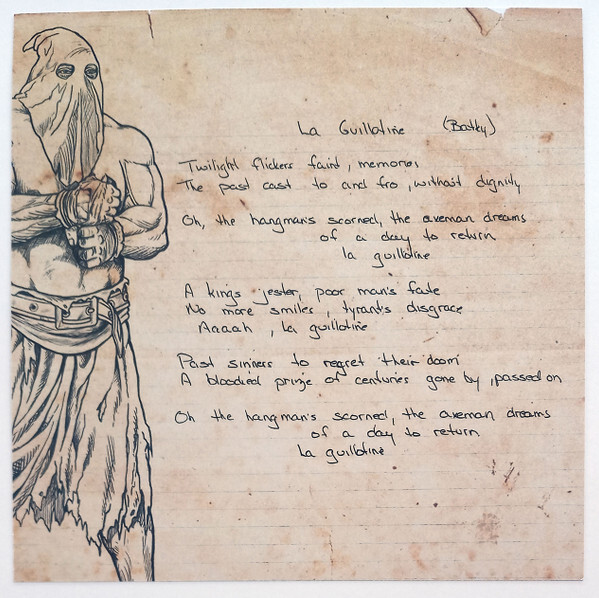 La Guillotine (Batky)
Twilight flickers faint, memories
The past cast to and fro, without dignity
Oh, the hangman's scorned, the axeman dreams
of a day to return
la guillotine
A kings jester, poor man's fate
No more smiles, tyrant's disgrace
Aaaah, la guillotine
Past sinners to regret their doom
A bloodied prize of centuries gone by, passed on
Oh the hangman's scorned, the axeman dreams
of a day to return
la guillotine